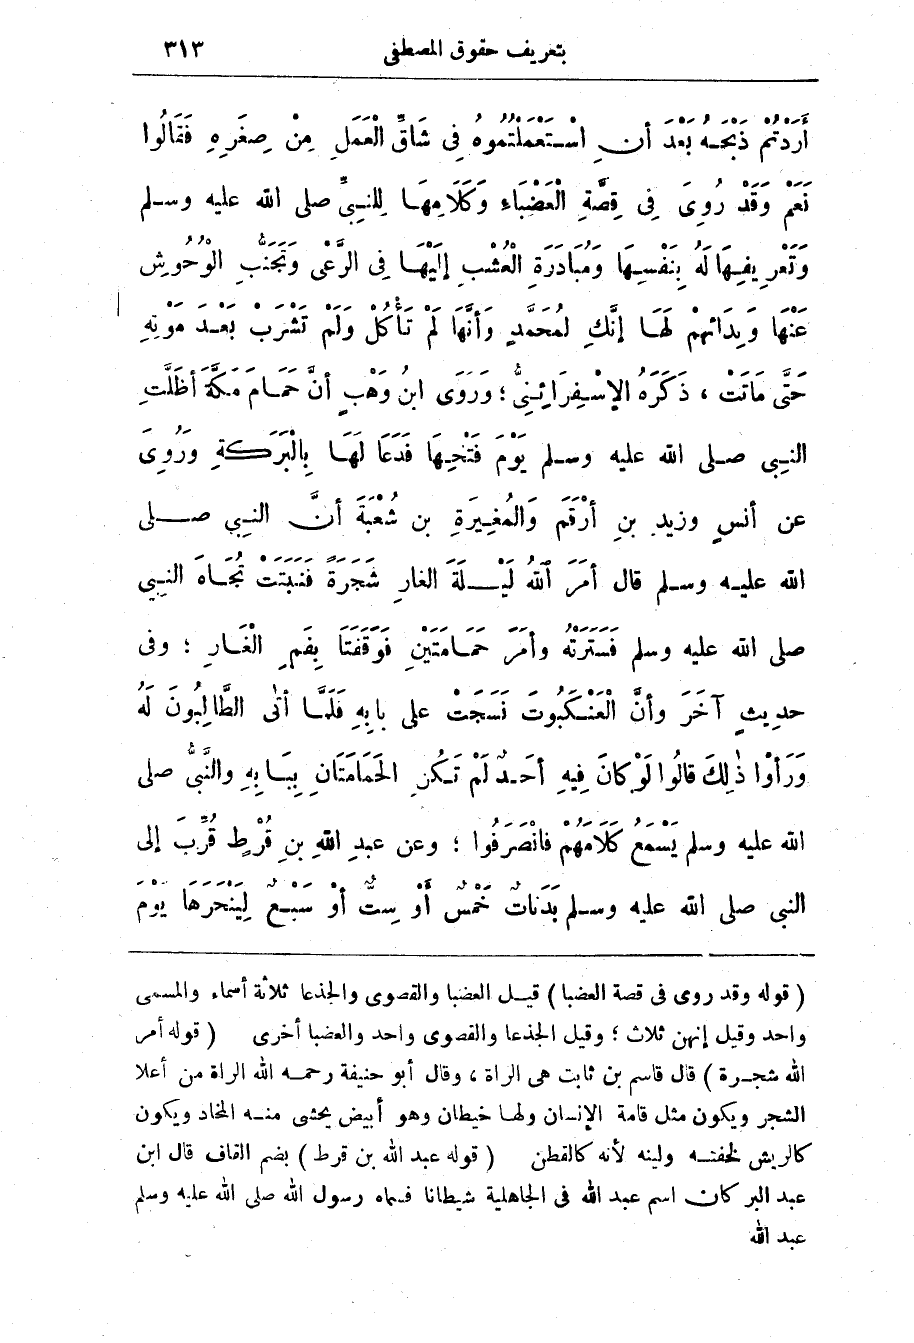 بتعريف حقوق المصطفى ٣١٣
أَرَدْتُمْ ذَبْحَهُ بَعْدَ أَنِ اسْتَعْمَلْتُمُوهُ فِى شَاقِّ الْعَمَلِ مِنْ صِغَرِهِ فَقَالُوا
نَعَمْ وَقَدْ رُوِىَ فِى قِصَّةِ الْعَضْبَاءِ وَكَلَامِهَا لِلنَّبِىِّ صلى الله عليه وسلم
وَتَعْرِيفِهَا لَهُ بِنَفْسِهَا وَمُبَادَرَةِ الْعُشْبِ إِلَيْهَا فِى الرَّعْىِ وَتَجَنُّبِ الْوُحُوشِ
عَنْهَا وَنِدَائِهِمْ لَهَا إِنَّكِ لِمُحَمَّدٍ وَأَنَّهَا لَمْ تَأْكُلْ وَلَمْ تَشْرَبْ بَعْدَ مَوْتِهِ
حَتَّى مَاتَتْ ، ذَكَرَهُ الإِسْفِرَائِنِىُّ ؛ وَرَوَى ابْنُ وَهْبٍ أَنَّ حَمَامَ مَكَّةَ أَظَلَّتِ
النبى صلى الله عليه وسلم يَوْمَ فَتْحِهَا فَدَعَا لَهَا بِالْبَرَكَةِ وَرُوِىَ
عن أنسٍ وزيدِ بنِ أَرْقَمَ وَالْمُغِيرَةِ بن شُعْبَةَ أَنَّ النبى صلى
الله عليه وسلم قال أَمَرَ اللهُ لَيْلَةَ الغارِ شَجَرَةً فَنَبَتَتْ تُجَاهَ النبى
صلى الله عليه وسلم فَسَتَرَتْهُ وأَمَرَ حَمَامَتَيْنِ فَوَقَفَتَا بِفَمِ الْغَارِ ؛ وفى
حديثٍ آخَرَ وأَنَّ الْعَنْكَبُوتَ نَسَجَتْ على بابِهِ فَلَمَّا أَتَى الطَّالِبُونَ لَهُ
وَرَأَوْا ذٰلِكَ قالُوا لَوْ كانَ فِيهِ أَحَدٌ لَمْ تَكُنِ الْحَمَامَتَانِ بِبَابِهِ والنَّبِىُّ صلى
الله عليه وسلم يَسْمَعُ كَلَامَهُمْ فانْصَرَفُوا ؛ وعن عبدِ اللهِ بنِ قُرْطٍ قُرِّبَ إلى
النبى صلى الله عليه وسلم بَدَنَاتٌ خَمْسٌ أَوْ سِتٌّ أَوْ سَبْعٌ لِيَنْحَرَهَا يَوْمَ
( قوله وقد روى فى قصة العضبا ) قيل العضبا والقصوى والجذعا ثلاثة أسماء والمسمى
واحد وقيل إنهن ثلاث ؛ وقيل الجذعا والقصوى واحد والعضبا أخرى ( قوله أمر
الله شجرة ) قال قاسم بن ثابت هى الراة ، وقال أبو حنيفة رحمه الله الراة من أعلا
الشجر ويكون مثل قامة الإنسان ولها خيطان وهو أبيض يحشى منه المخاد ويكون
كالريش لخفته ولينه لأنه كالقطن ( قوله عبد الله بن قرط ) بضم القاف قال ابن
عبد البر كان اسم عبد الله فى الجاهلية شيطانا فسماه رسول الله صلى الله عليه وسلم
عبد الله